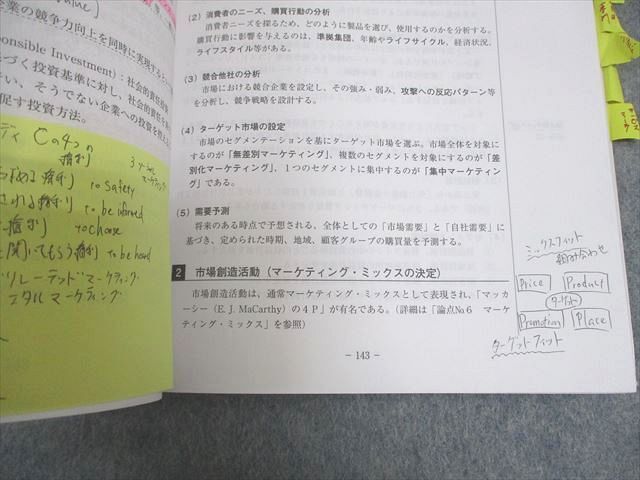 企業の競争力向上を同時に実現する
ponsible Investment)：社会的責任投資
づく投資基準に対し、社会的責任を
い、そうでない企業への投資を控え
促す投資方法。
Cの4つの
権利
3
マーケティング
権利) to safety
される権利) to be iformed
権利) to choose
聞いてもらう権利 to be heard
リレーテッドマーケティング
マーケティング
(2) 消費者のニーズ、購買行動の分析
消費者のニーズを探るため、どのように製品を選び、使用するのかを分析する。
購買行動に影響を与えるのは、準拠集団、年齢やライフサイクル、経済状況、
ライフスタイル等がある。
(3) 競合他社の分析
市場における競合企業を設定し、その強み・弱み、攻撃への反応パターン等
を分析し、競争戦略を設計する。
(4) ターゲット市場の設定
市場のセグメンテーションを基にターゲット市場を選ぶ。市場全体を対象に
するのが「無差別マーケティング」、複数のセグメントを対象にするのが「差
別化マーケティング」、1つのセグメントに集中するのが「集中マーケティン
グ」である。
(5) 需要予測
将来のある時点で予想される、全体としての「市場需要」と「自社需要」に
基づき、定められた時期、地域、顧客グループの購買量を予測する。
2 市場創造活動（マーケティング・ミックスの決定）
市場創造活動は、通常マーケティング・ミックスとして表現され、「マッカ
ーシー（E. J. MaCarthy）の4P」が有名である。（詳細は「論点№6 マーケ
ティング・ミックス」を参照）
ミックスフィット
組み合わせ
Price Product
ターゲット
Promotion Place
ターゲットフィット
－ 143 －